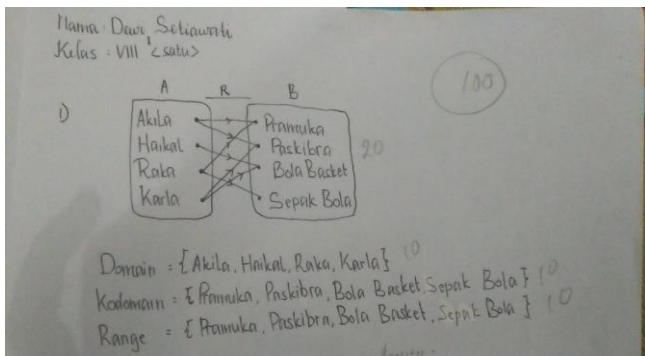 Nama : Dewi Setiawati
Kelas : VIII <satu>
100
A R B
1)
Akila Pramuka
Haikal Paskibra 20
Raka Bola Basket
Karla Sepak Bola
Domain = { Akila, Haikal, Raka, Karla } 10
Kodomain = { Pramuka, Paskibra, Bola Basket, Sepak Bola } 10
Range = { Pramuka, Paskibra, Bola Basket, Sepak Bola } 10